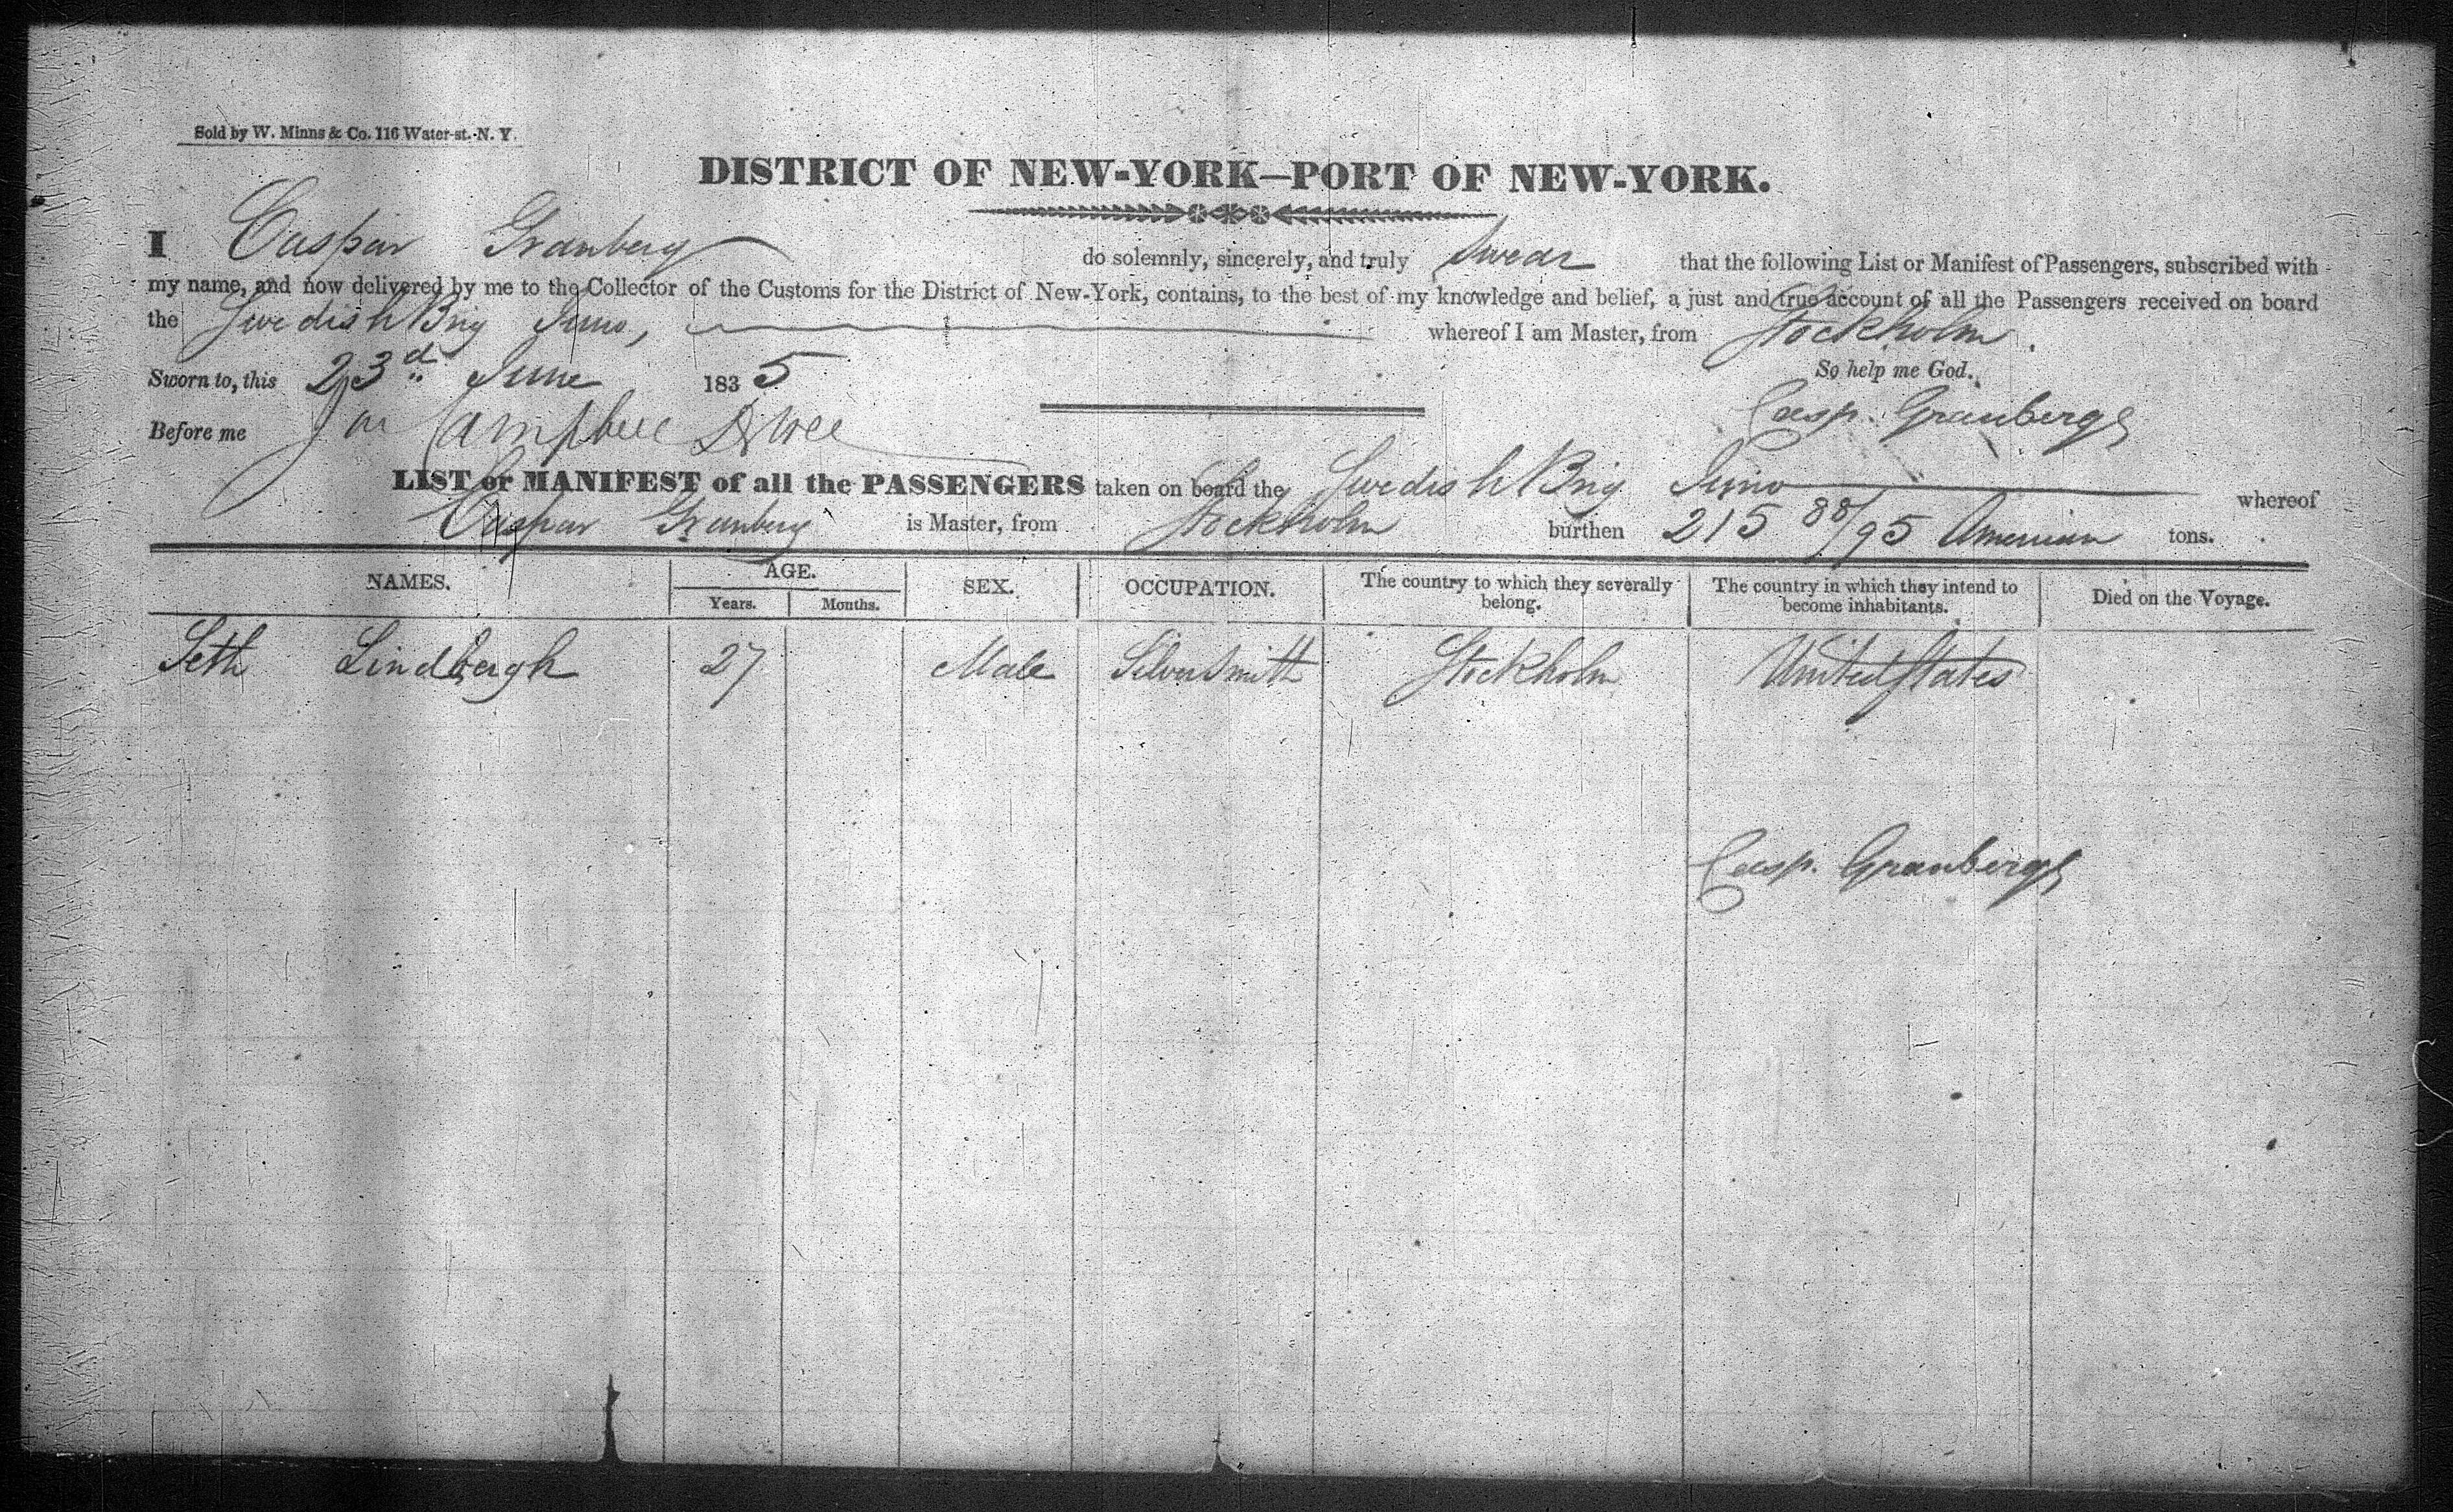 Sold by W. Minns & Co. 116 Water-st.-N. Y.
DISTRICT OF NEW-YORK—PORT OF NEW-YORK.
I Caspar Granberg do solemnly, sincerely, and truly Swear that the following List or Manifest of Passengers, subscribed with
my name, and now delivered by me to the Collector of the Customs for the District of New-York, contains, to the best of my knowledge and belief, a just and true account of all the Passengers received on board
the Swedish Brig Juno, whereof I am Master, from Stockholm.
Sworn to, this 23d June 1835 So help me God.
Before me Campbell Casp. Granberg
LIST or MANIFEST of all the PASSENGERS taken on board the Swedish Brig Juno whereof
Caspar Granberg is Master, from Stockholm burthen 215 88/95 American tons.
NAMES. AGE. SEX. OCCUPATION. The country to which they severally belong. The country in which they intend to become inhabitants. Died on the Voyage.
Years. Months.
Seth Lindbergh 27 Male Silversmith Stockholm United States
Casp. Granberg